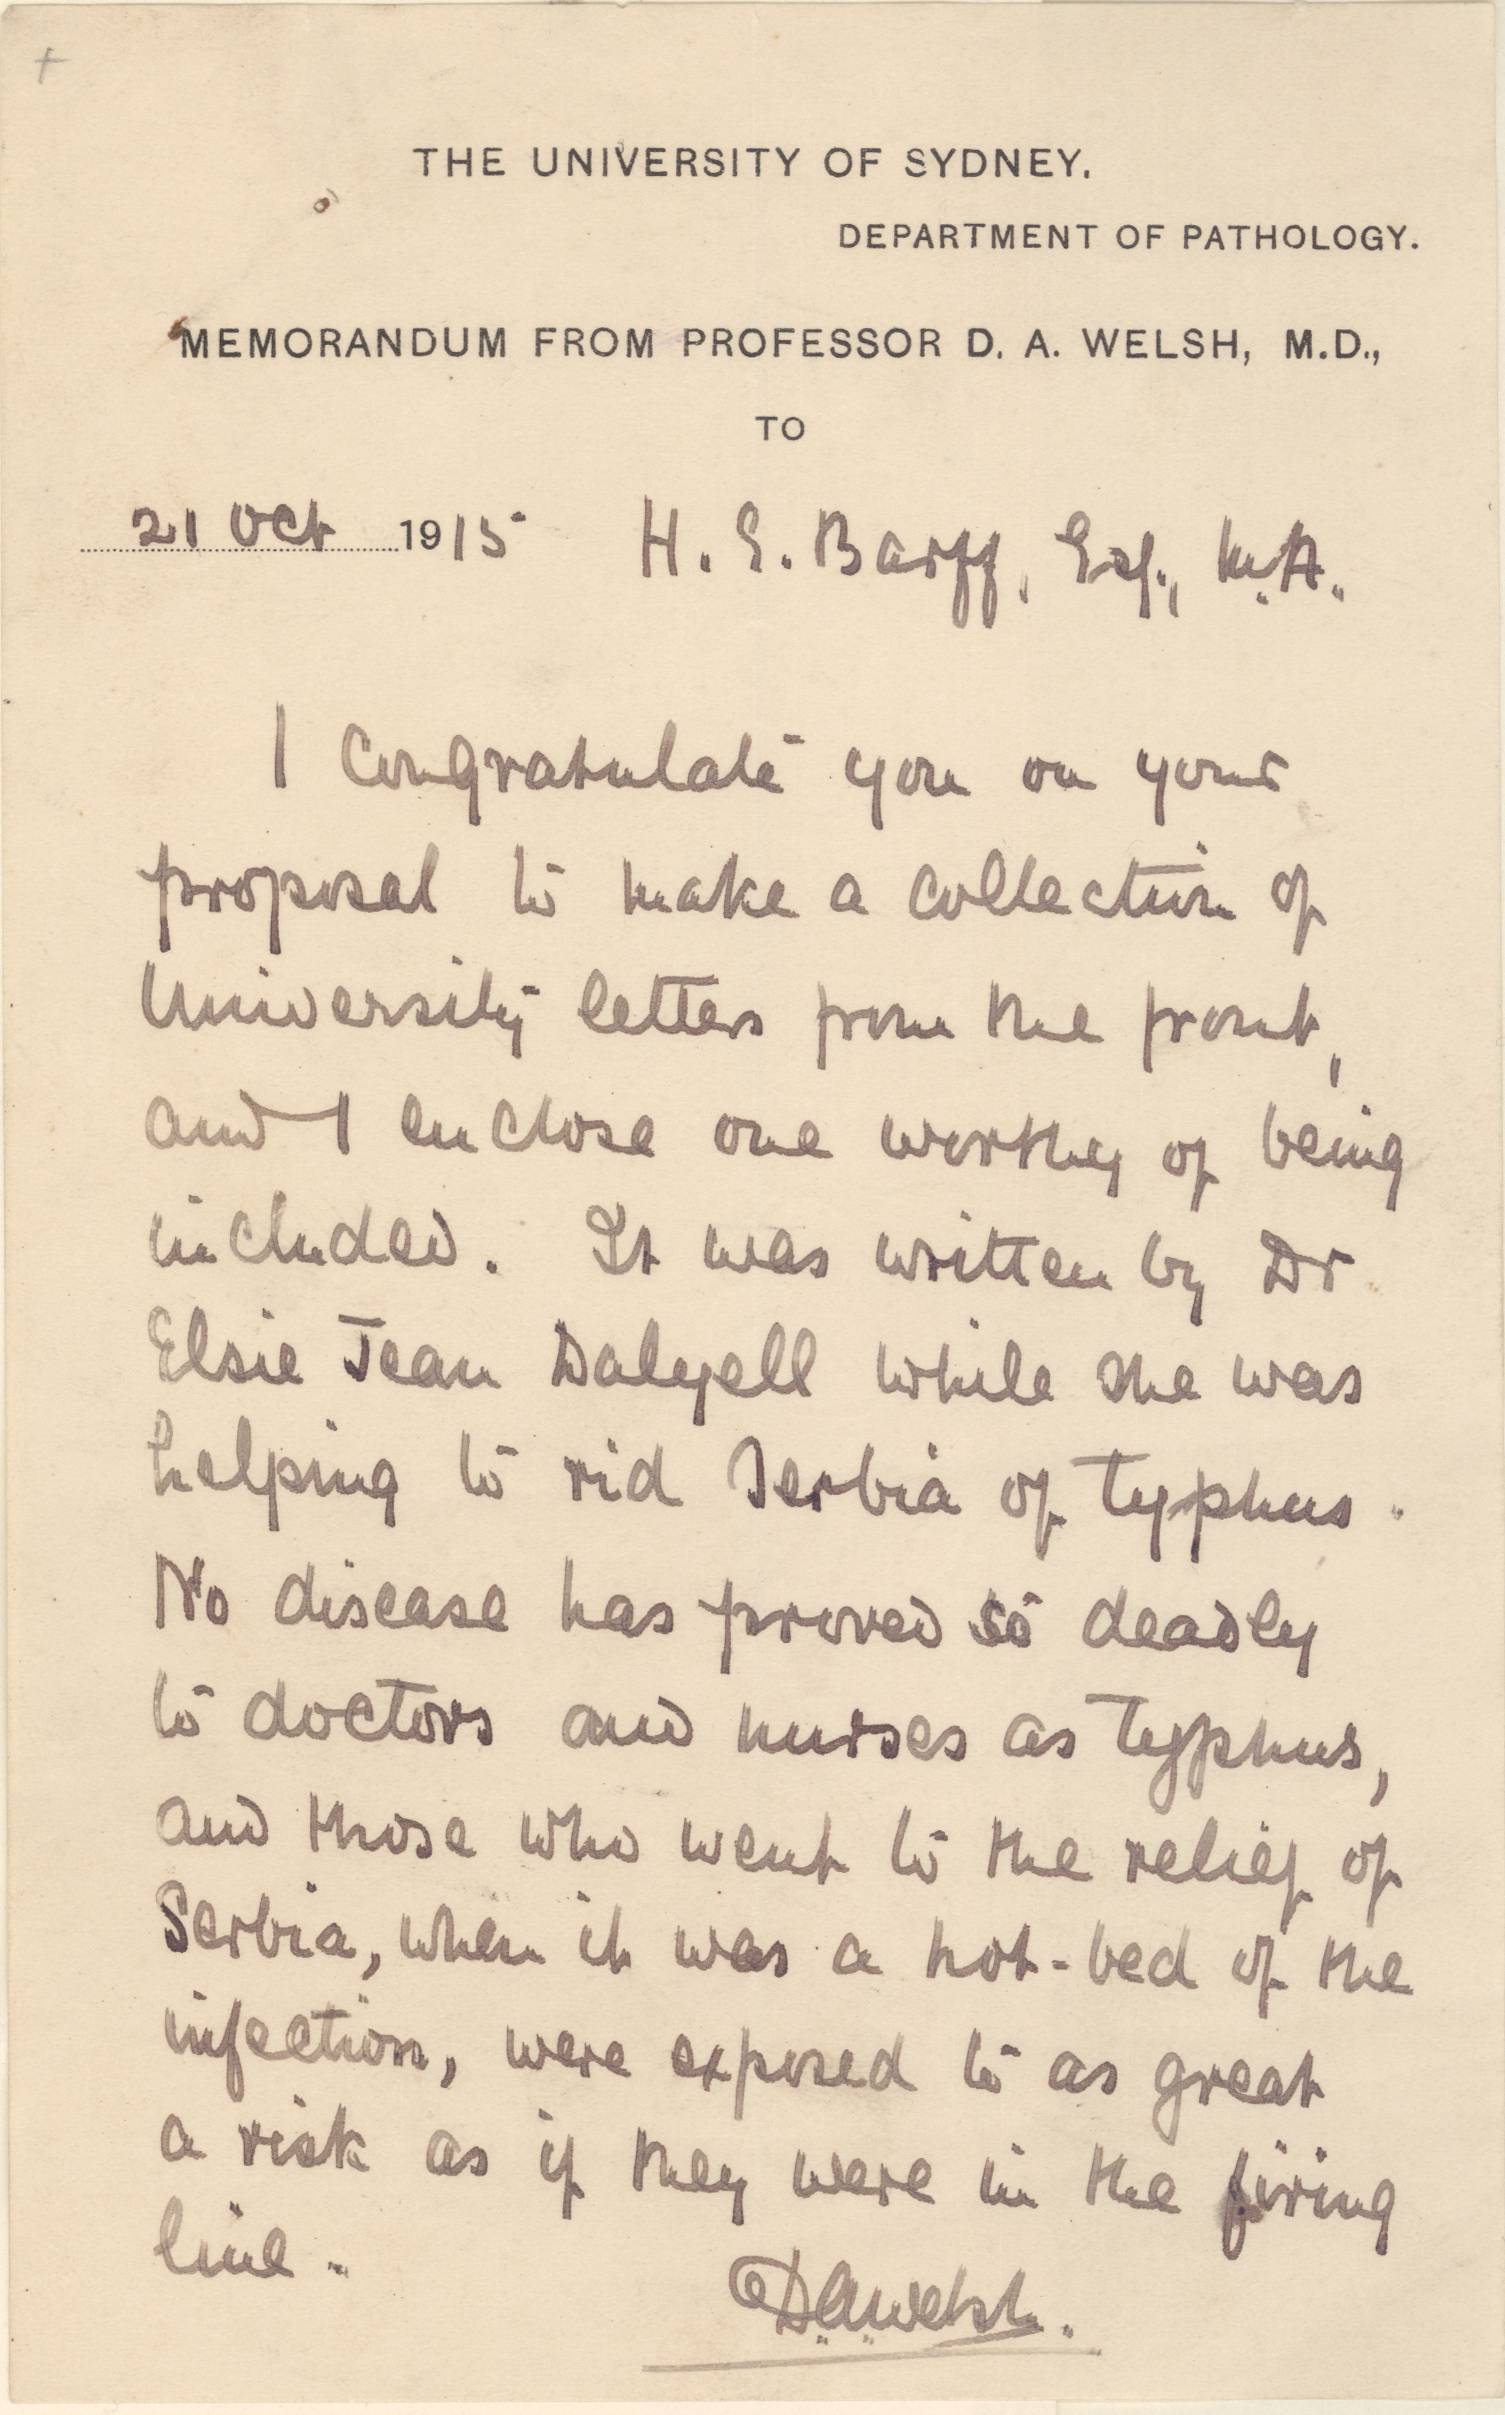 THE UNIVERSITY OF SYDNEY.
DEPARTMENT OF PATHOLOGY.
MEMORANDUM FROM PROFESSOR D. A. WELSH, M.D.,
TO
21 Oct 1915 H. E. Barff, Esq., M.A.
I congratulate you on your
proposal to make a collection of
University letters from the front,
and I enclose one worthy of being
included. It was written by Dr
Elsie Jean Dalyell while she was
helping to rid Serbia of typhus.
No disease has proved so deadly
to doctors and nurses as typhus,
and those who went to the relief of
Serbia, when it was a hot-bed of the
infection, were exposed to as great
a risk as if they were in the firing
line.
D.A. Welsh.